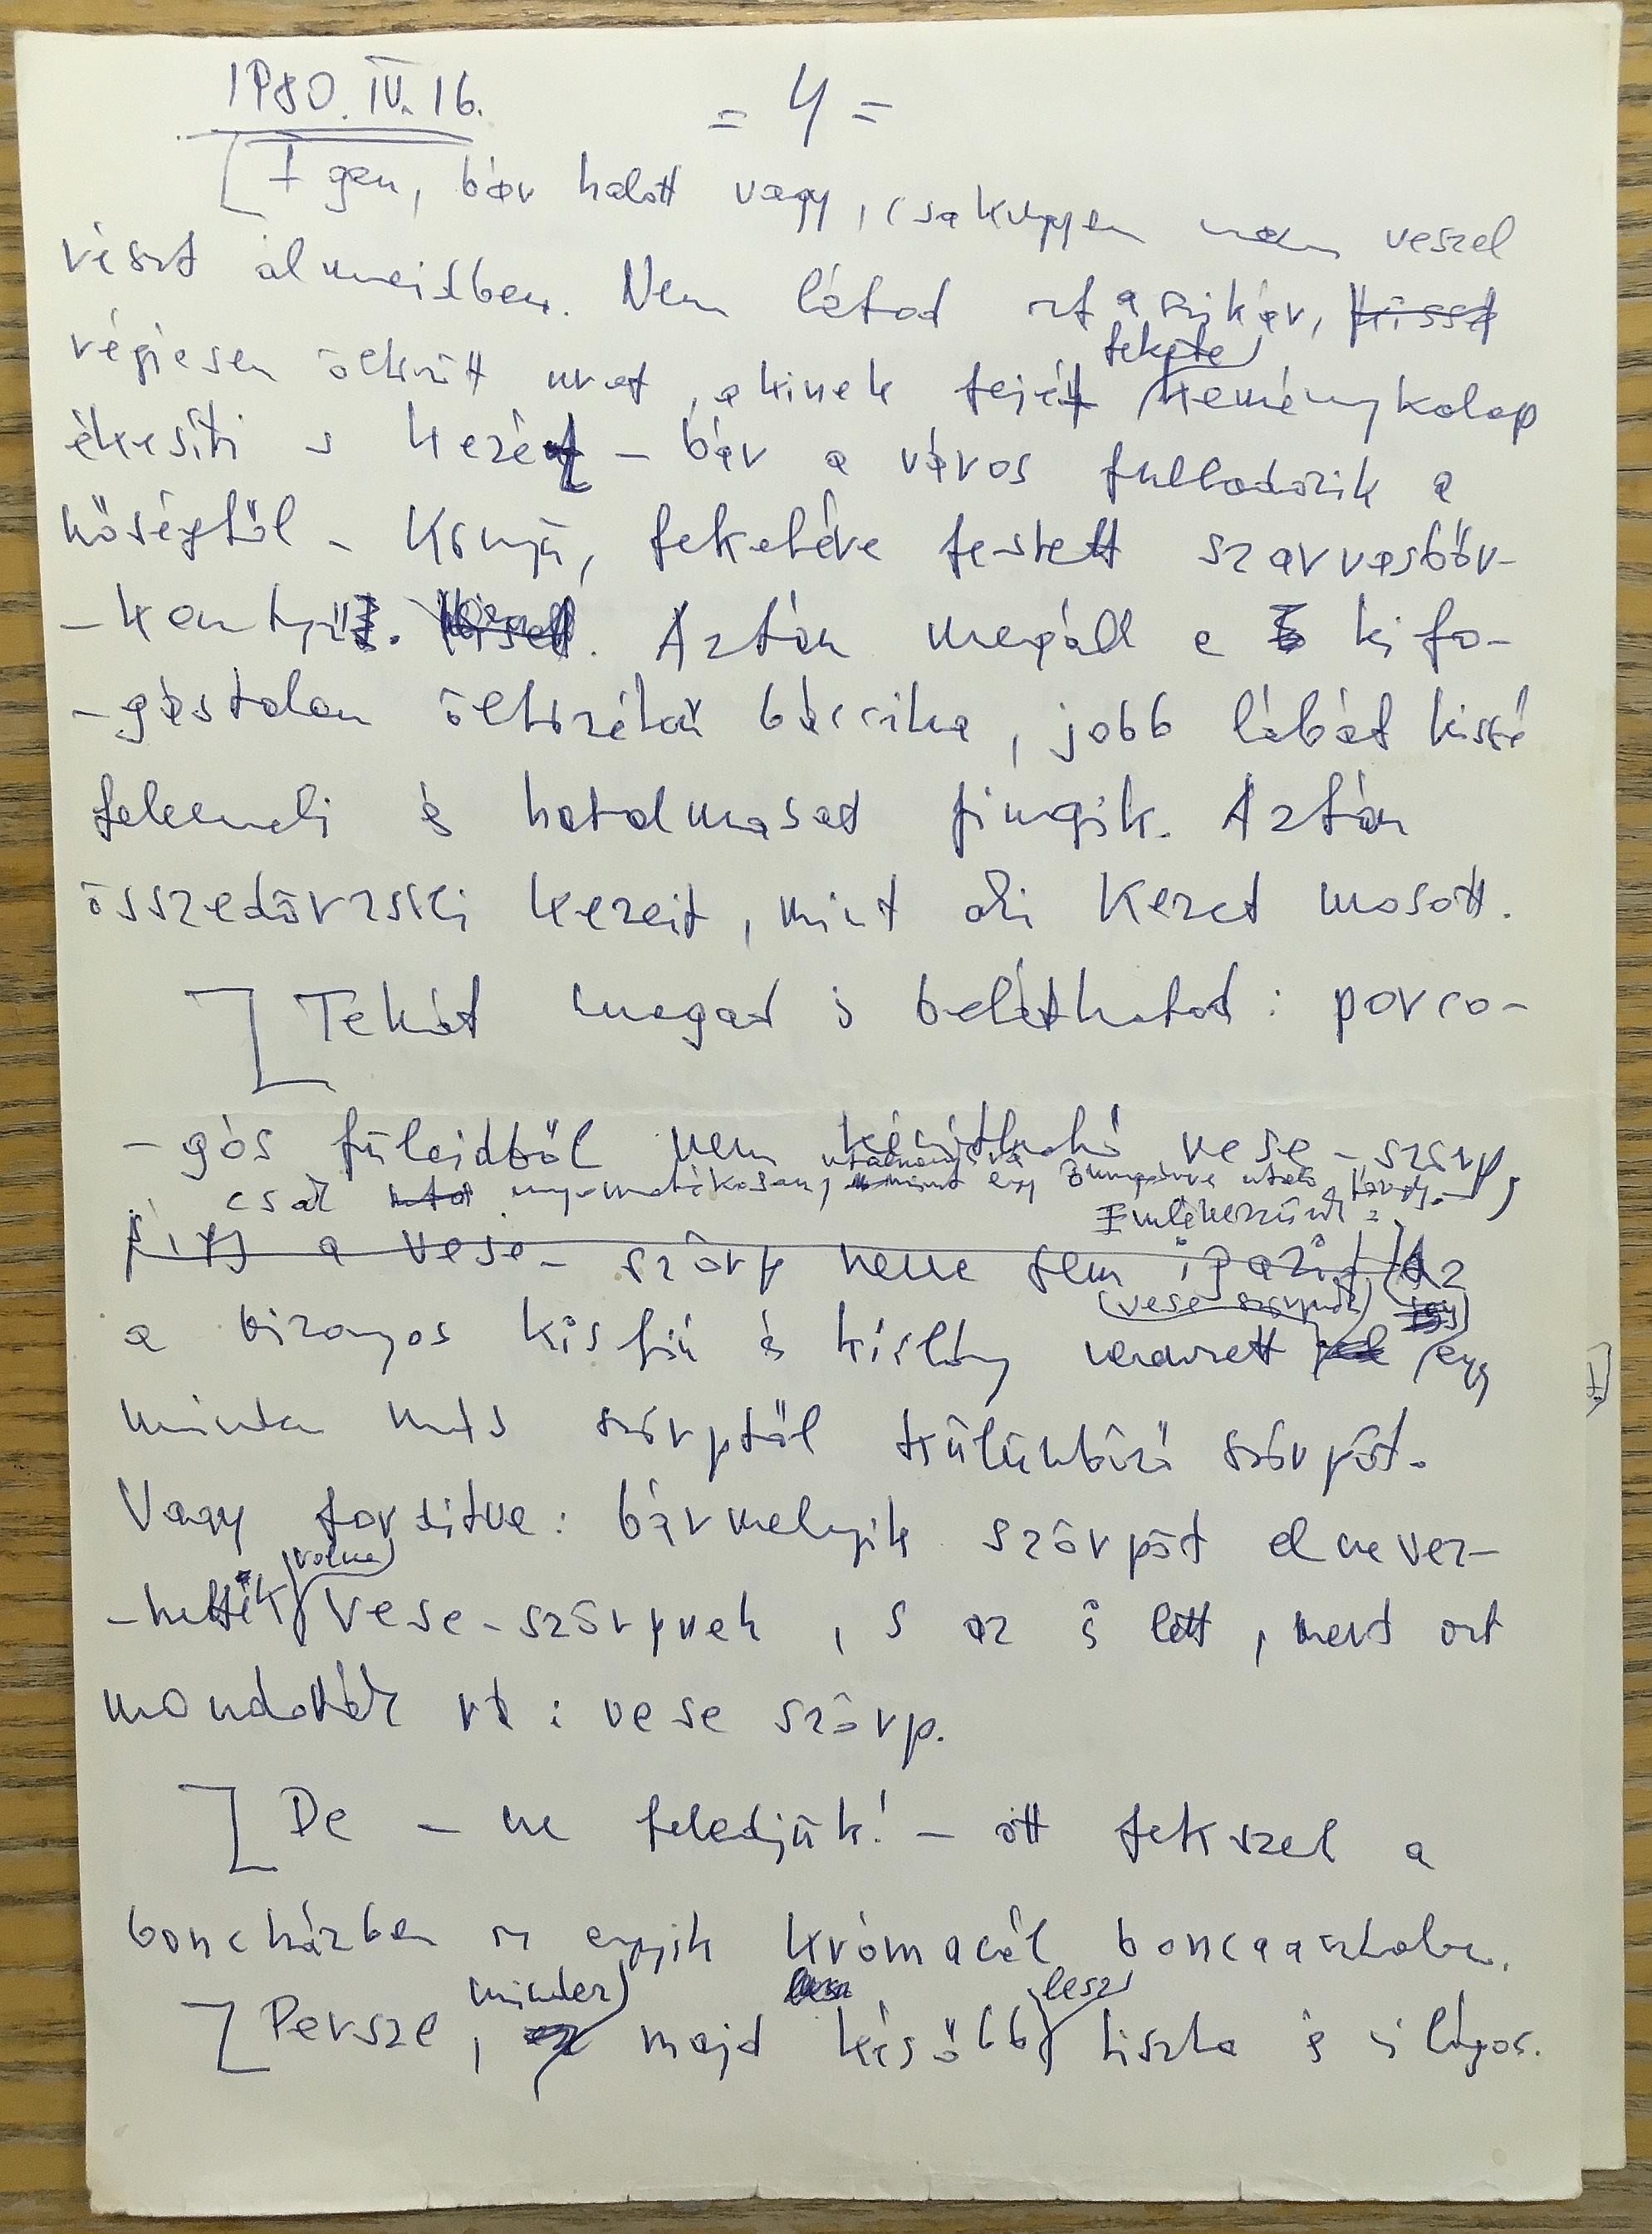 1980. IV. 16.
= 4 =
Igen, bár halott vagy, csakugyan nem veszel
részt álmaidban. Nem látod azt a szikár, kissé
régiesen öltözött urat, akinek fejét fekete keménykalap
ékesíti s kezét – bár a város fulladozik a
hőségtől – könnyű, feketére festett szarvasbőr-
-kesztyű. Aztán megáll e kifo-
-gástalan öltözékű bácsika, jobb lábát kissé
felemeli és hatalmasat fingik. Aztán
összedörzsöli kezeit, mint aki kezet mosott.
Tehát magad is beláthatod: porco-
-gós füleidből nem készíthető vese-szörp,
csak nyomatékosan, mint egy
Emlékezzünk:
így a vese-szörp neve sem igazi. Az
(vese szörpnek)
a bizonyos kisfiú és kislány nevezett egy
minden más szörptől különböző szörpöt.
Vagy fordítva: bármelyik szörpöt elnevez-
(volna)
-hették vese-szörpnek, s az is lett, mert azt
mondották rá: vese szörp.
De – ne feledjük! – itt fekszel a
boncházban az egyik krómacél boncasztalon.
minden lesz
Persze, majd később tiszta és világos.